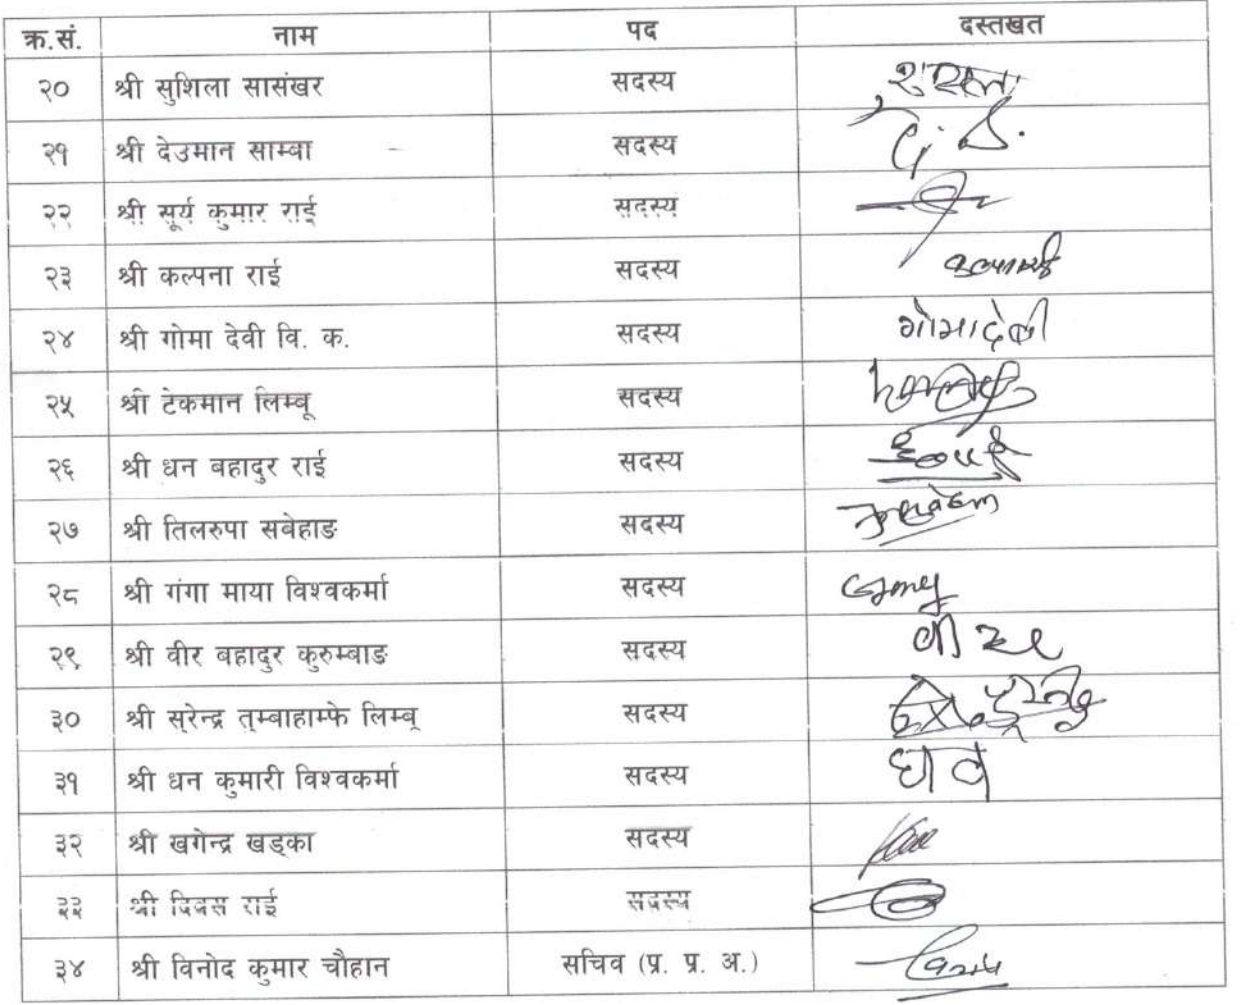 क्र.सं. नाम पद दस्तखत
२० श्री सुशिला सासंखर सदस्य
२१ श्री देउमान साम्बा सदस्य
२२ श्री सूर्य कुमार राई सदस्य
२३ श्री कल्पना राई सदस्य
२४ श्री गोमा देवी वि. क. सदस्य गोमादेवी
२५ श्री टेकमान लिम्बू सदस्य
२६ श्री धन बहादुर राई सदस्य
२७ श्री तिलरुपा सबेहाङ सदस्य
२८ श्री गंगा माया विश्वकर्मा सदस्य
२९ श्री वीर बहादुर कुरुम्बाङ सदस्य
३० श्री सुरेन्द्र तुम्बाहाम्फे लिम्बू सदस्य
३१ श्री धन कुमारी विश्वकर्मा सदस्य
३२ श्री खगेन्द्र खड्का सदस्य
३३ श्री दिवस राई सदस्य
३४ श्री विनोद कुमार चौहान सचिव (प्र. प्र. अ.)